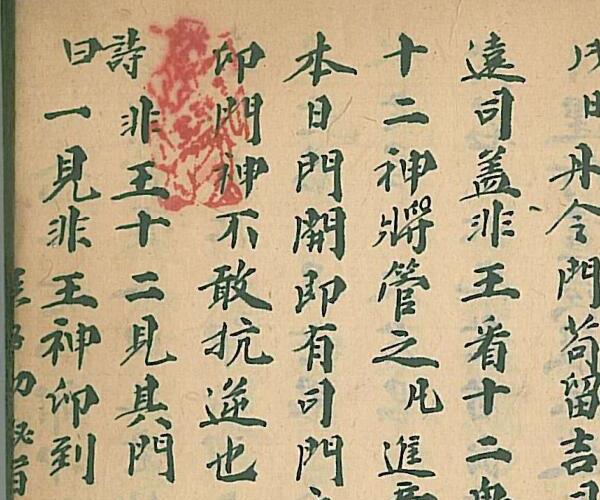 丹令門苟留吉
遠司盖非王看十二
十二神將管之凡進
本日門開即有司門
卯門神不敢抗逆也
詩非王十二見其門
曰一見非王神卯到